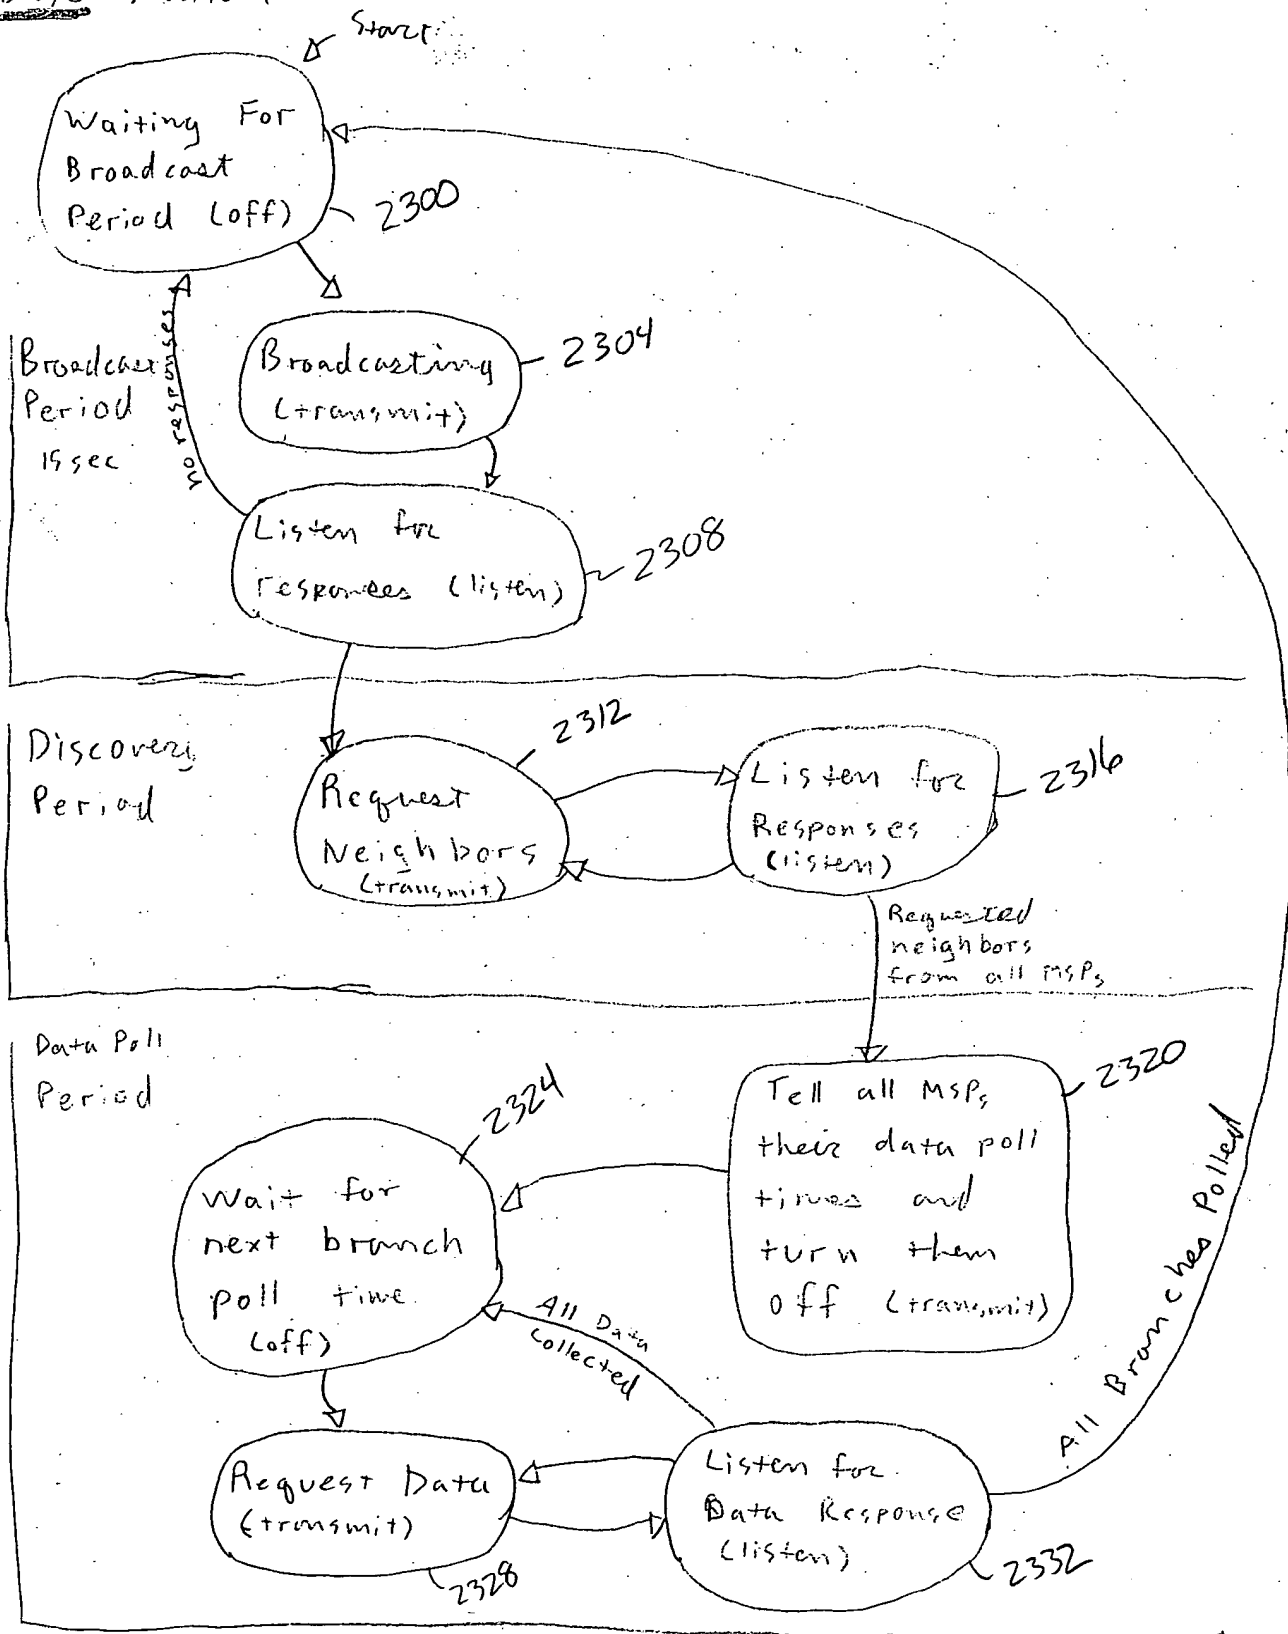 Start
Waiting For
Broadcast
Period (off)
2300
no responses
Broadcast
Period
15 sec
Broadcasting
(transmit)
2304
Listen for
responses (listen)
2308
Discovery
Period
2312
Request
Neighbors
(transmit)
Listen for
Responses
(listen)
2316
Requested
neighbors
from all MSPs
Data Poll
Period
2324
Wait for
next branch
poll time
(off)
Tell all MSPs
their data poll
times and
turn them
off (transmit)
2320
All Data
Collected
All Branches Polled
Request Data
(transmit)
2328
Listen for
Data Response
(listen)
2332